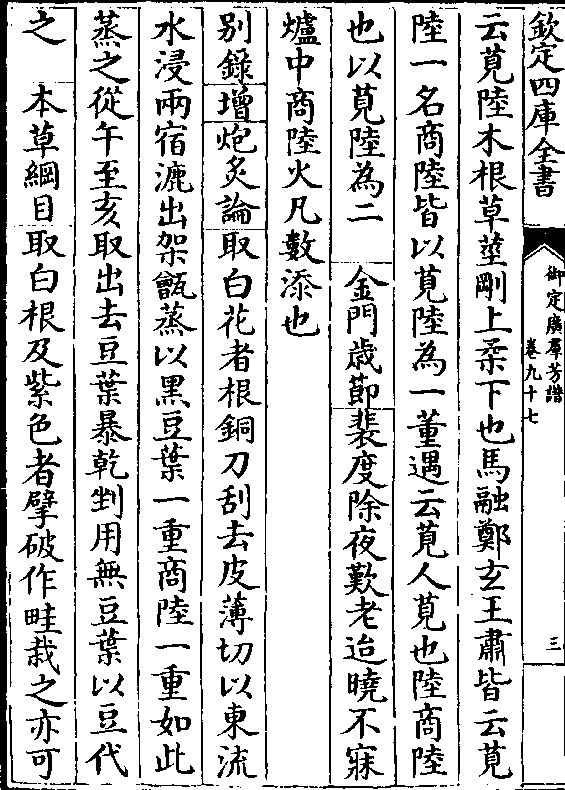 欽定四庫全書
御定廣羣芳譜
卷九十七
三
云莧陸木根草莖剛上柔下也馬融鄭玄王肅皆云莧
陸一名商陸皆以莧陸為一董遇云莧人莧也陸商陸
也以莧陸為二　金門歲節裴度除夜歎老迨曉不寐
爐中商陸火凡數添也
别錄增炮炙論取白花者根銅刀刮去皮薄切以東流
水浸兩宿漉出架甑蒸以黑豆葉一重商陸一重如此
蒸之從午至亥取出去豆葉暴乾剉用無豆葉以豆代
之　本草綱目取白根及紫色者擘破作畦栽之亦可